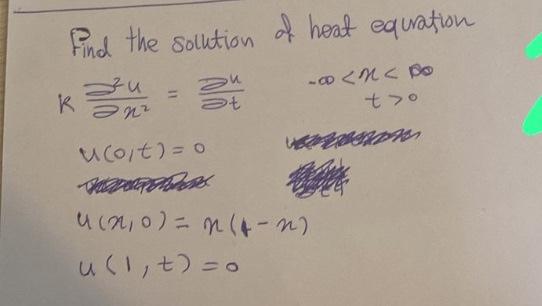 Find the solution of heat equation
k ∂²u/∂x² = ∂u/∂t -∞ < x < ∞
t > 0
u(0,t) = 0
u(x,0) = x(1-x)
u(1,t) = 0